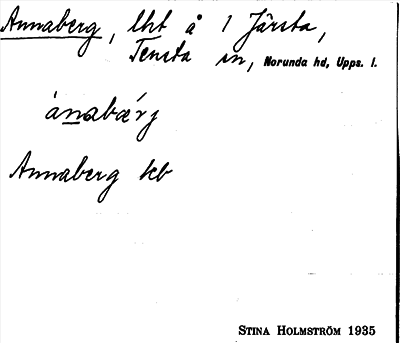 Annaberg, lht å 1 Järsta,
Tensta sn, Norunda hd, Upps. l.
ánabæ̀rj
Annaberg kb
STINA HOLMSTRÖM 1935